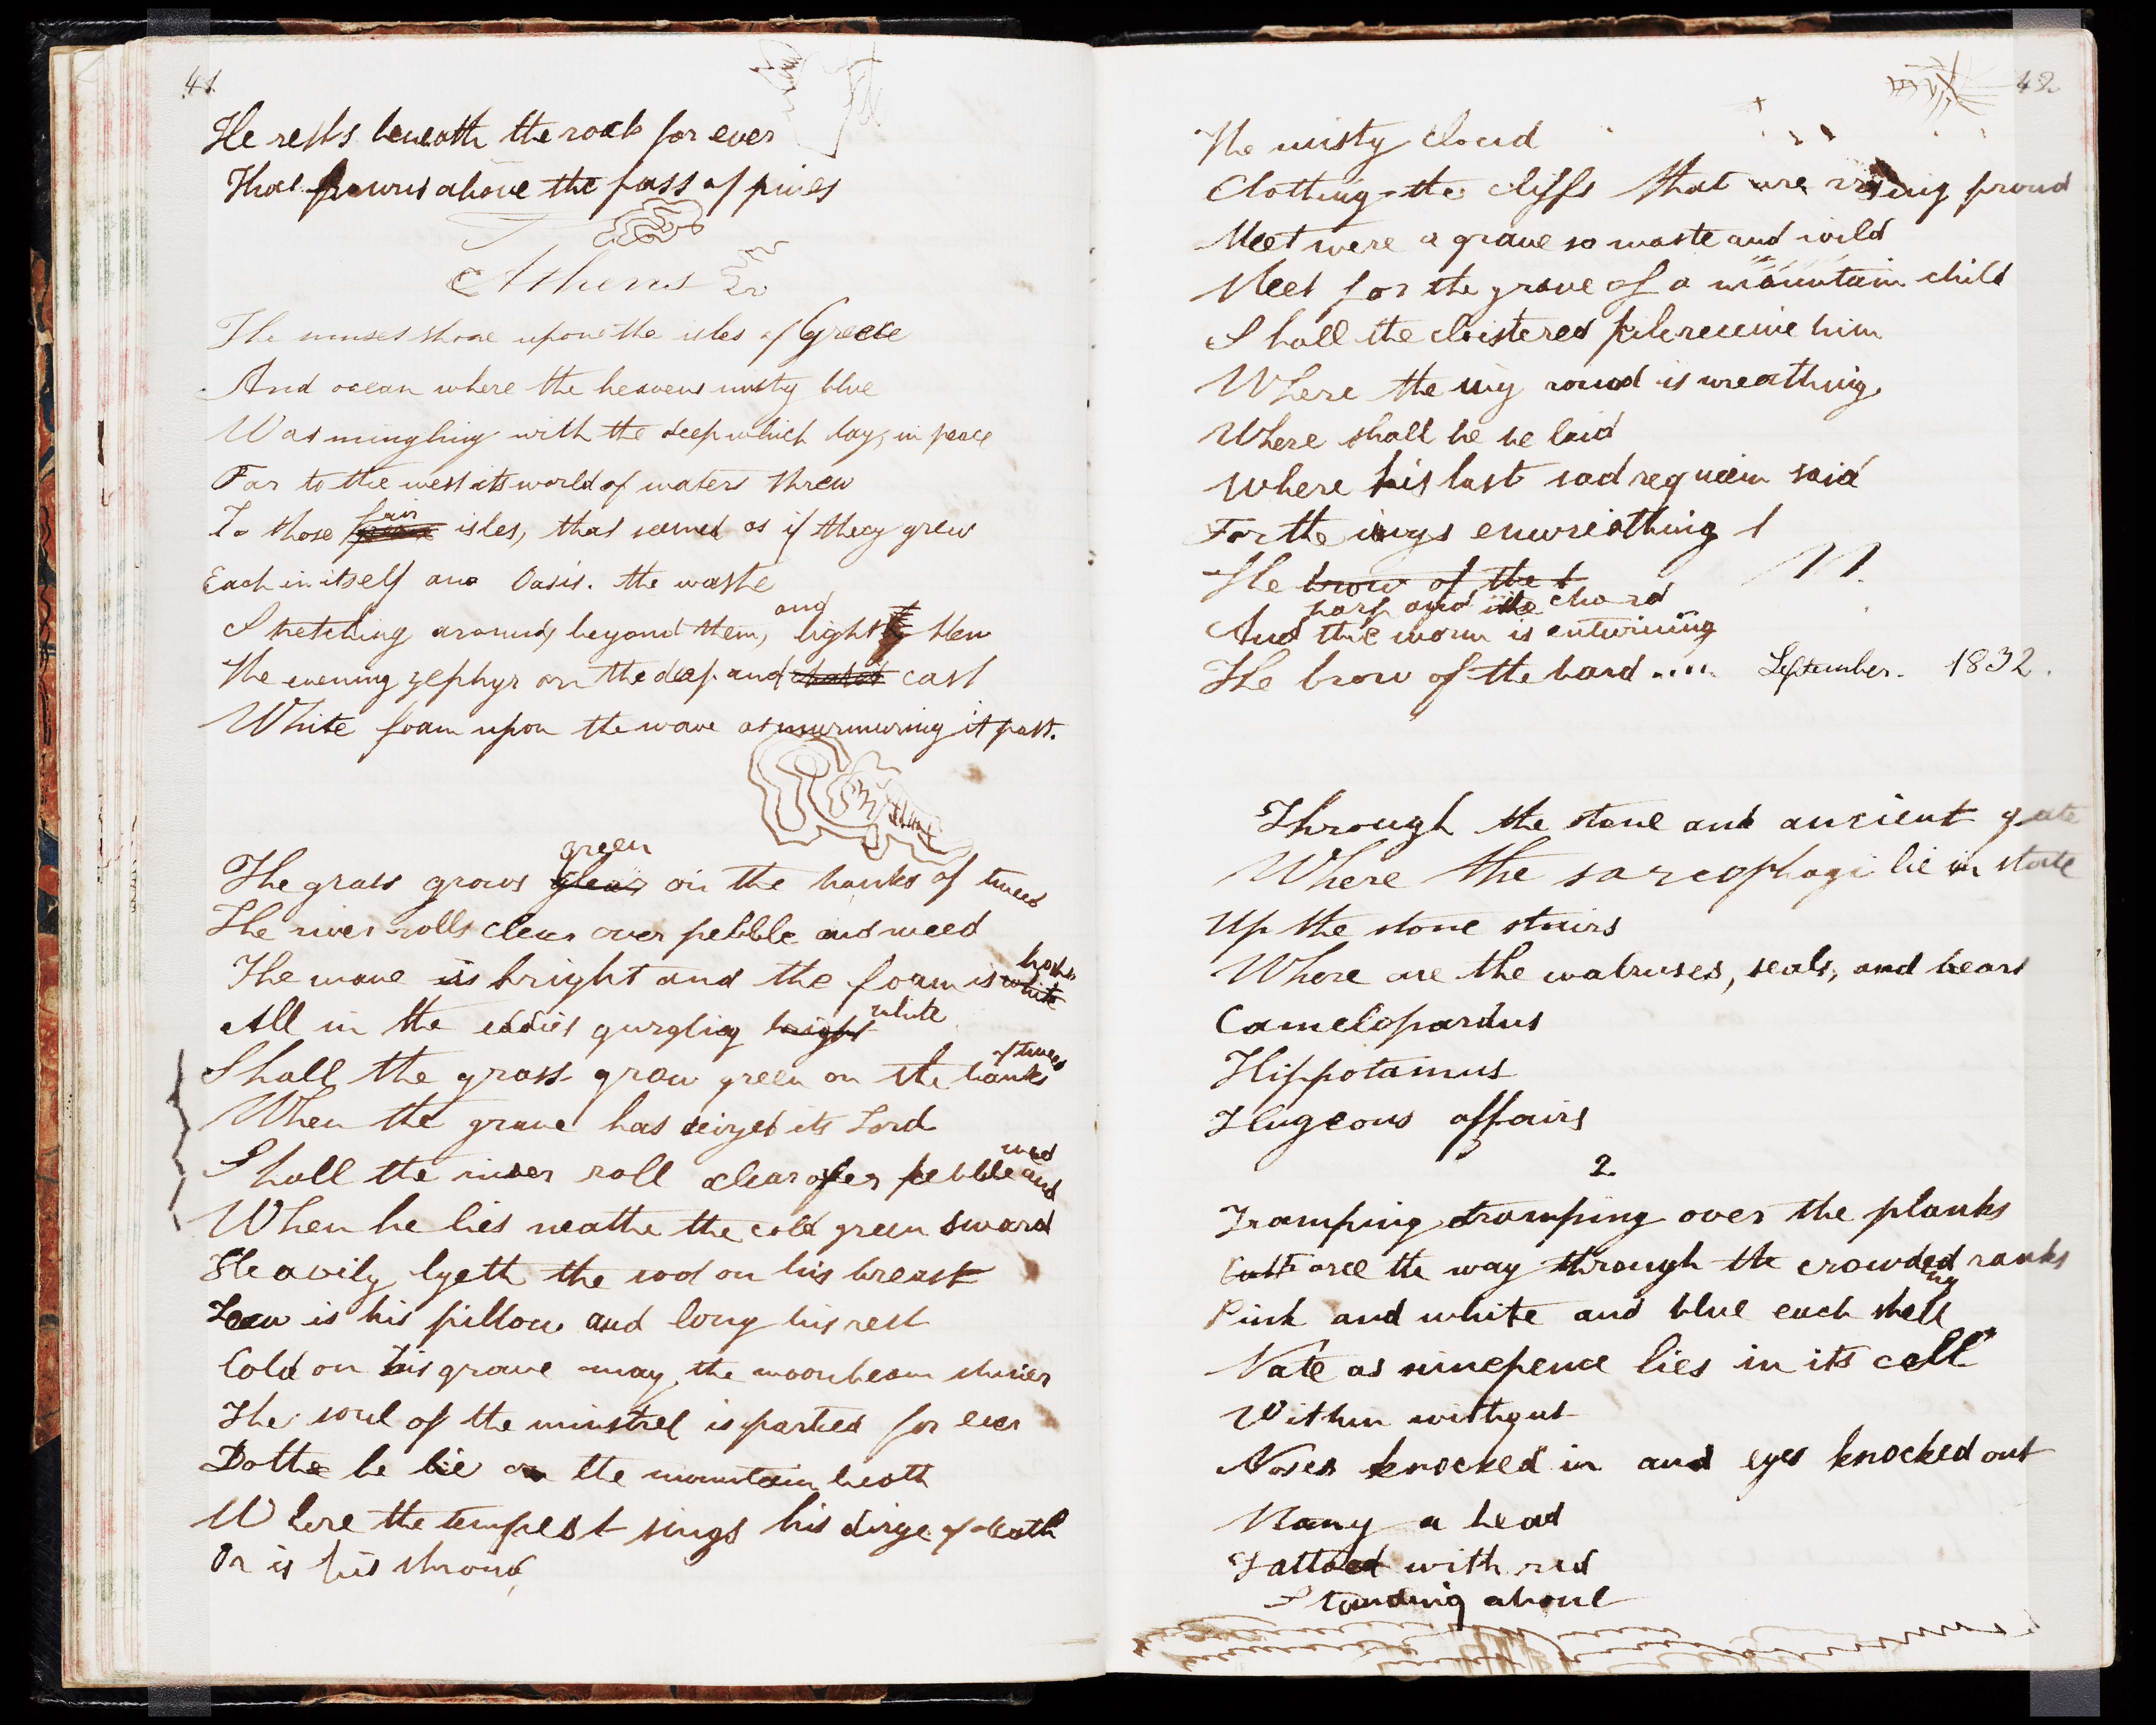 41
He rests beneath the rock for ever
That frowns above the pass of pines
Athens
The sunset shone upon the isles of Greece
And ocean where the heavens misty blue
Was mingling with the deep which lay, in peace
Far to the west its world of waters threw
fair
To those isles, that seemed as if they grew
Each in itself an Oasis. the waste
and
Stretching around, beyond them, light blew
The evening zephyr on the deep and cast
White foam upon the wave as murmuring it past.
green
The grass grows on the banks of tweed
The river rolls clear over pebble and weed
The wave is bright and the foam is white
All in the eddies gurgling bright white
of tweed
Shall the grass grow green on the banks
When the grave has seized its Lord
weed
Shall the river roll clear o'er pebble and
When he lies neathe the cold green sward
Heavily lyeth the sod on his breast
Low is his pillow and long his rest
Cold on his grave may the moonbeam shiver
The soul of the minstrel is parted for ever
Dothe he lie on the mountain heath
Where the tempest sings his dirge of death
Or is his shroud
42
The misty cloud
Clothing the cliffs that are rising proud
Meet were a grave so waste and wild
Meet for the grave of a mountain child
Shall the cloistered pile receive him
Where the ivy round is wreathing
Where shall he be laid
Where his last sad requiem said
For the ivys enwreathing
The brow of the
harp and the chord
And the worm is entwining
The brow of the bard .... September. 1832.
Through the stone and ancient gate
Where the sarcophagi lie in state
Up the stone stairs
Where are the walruses, seals, and bears
Camelopardus
Hippotamus
Hugeous affairs
2
Tramping tramping over the planks
are the way through the crowded ranks
Pink and white and blue each shell
Nate as ninepence lies in its cell
Within without
Noses knocked in and eyes knocked out
Many a head
Tattoed with red
Standing about